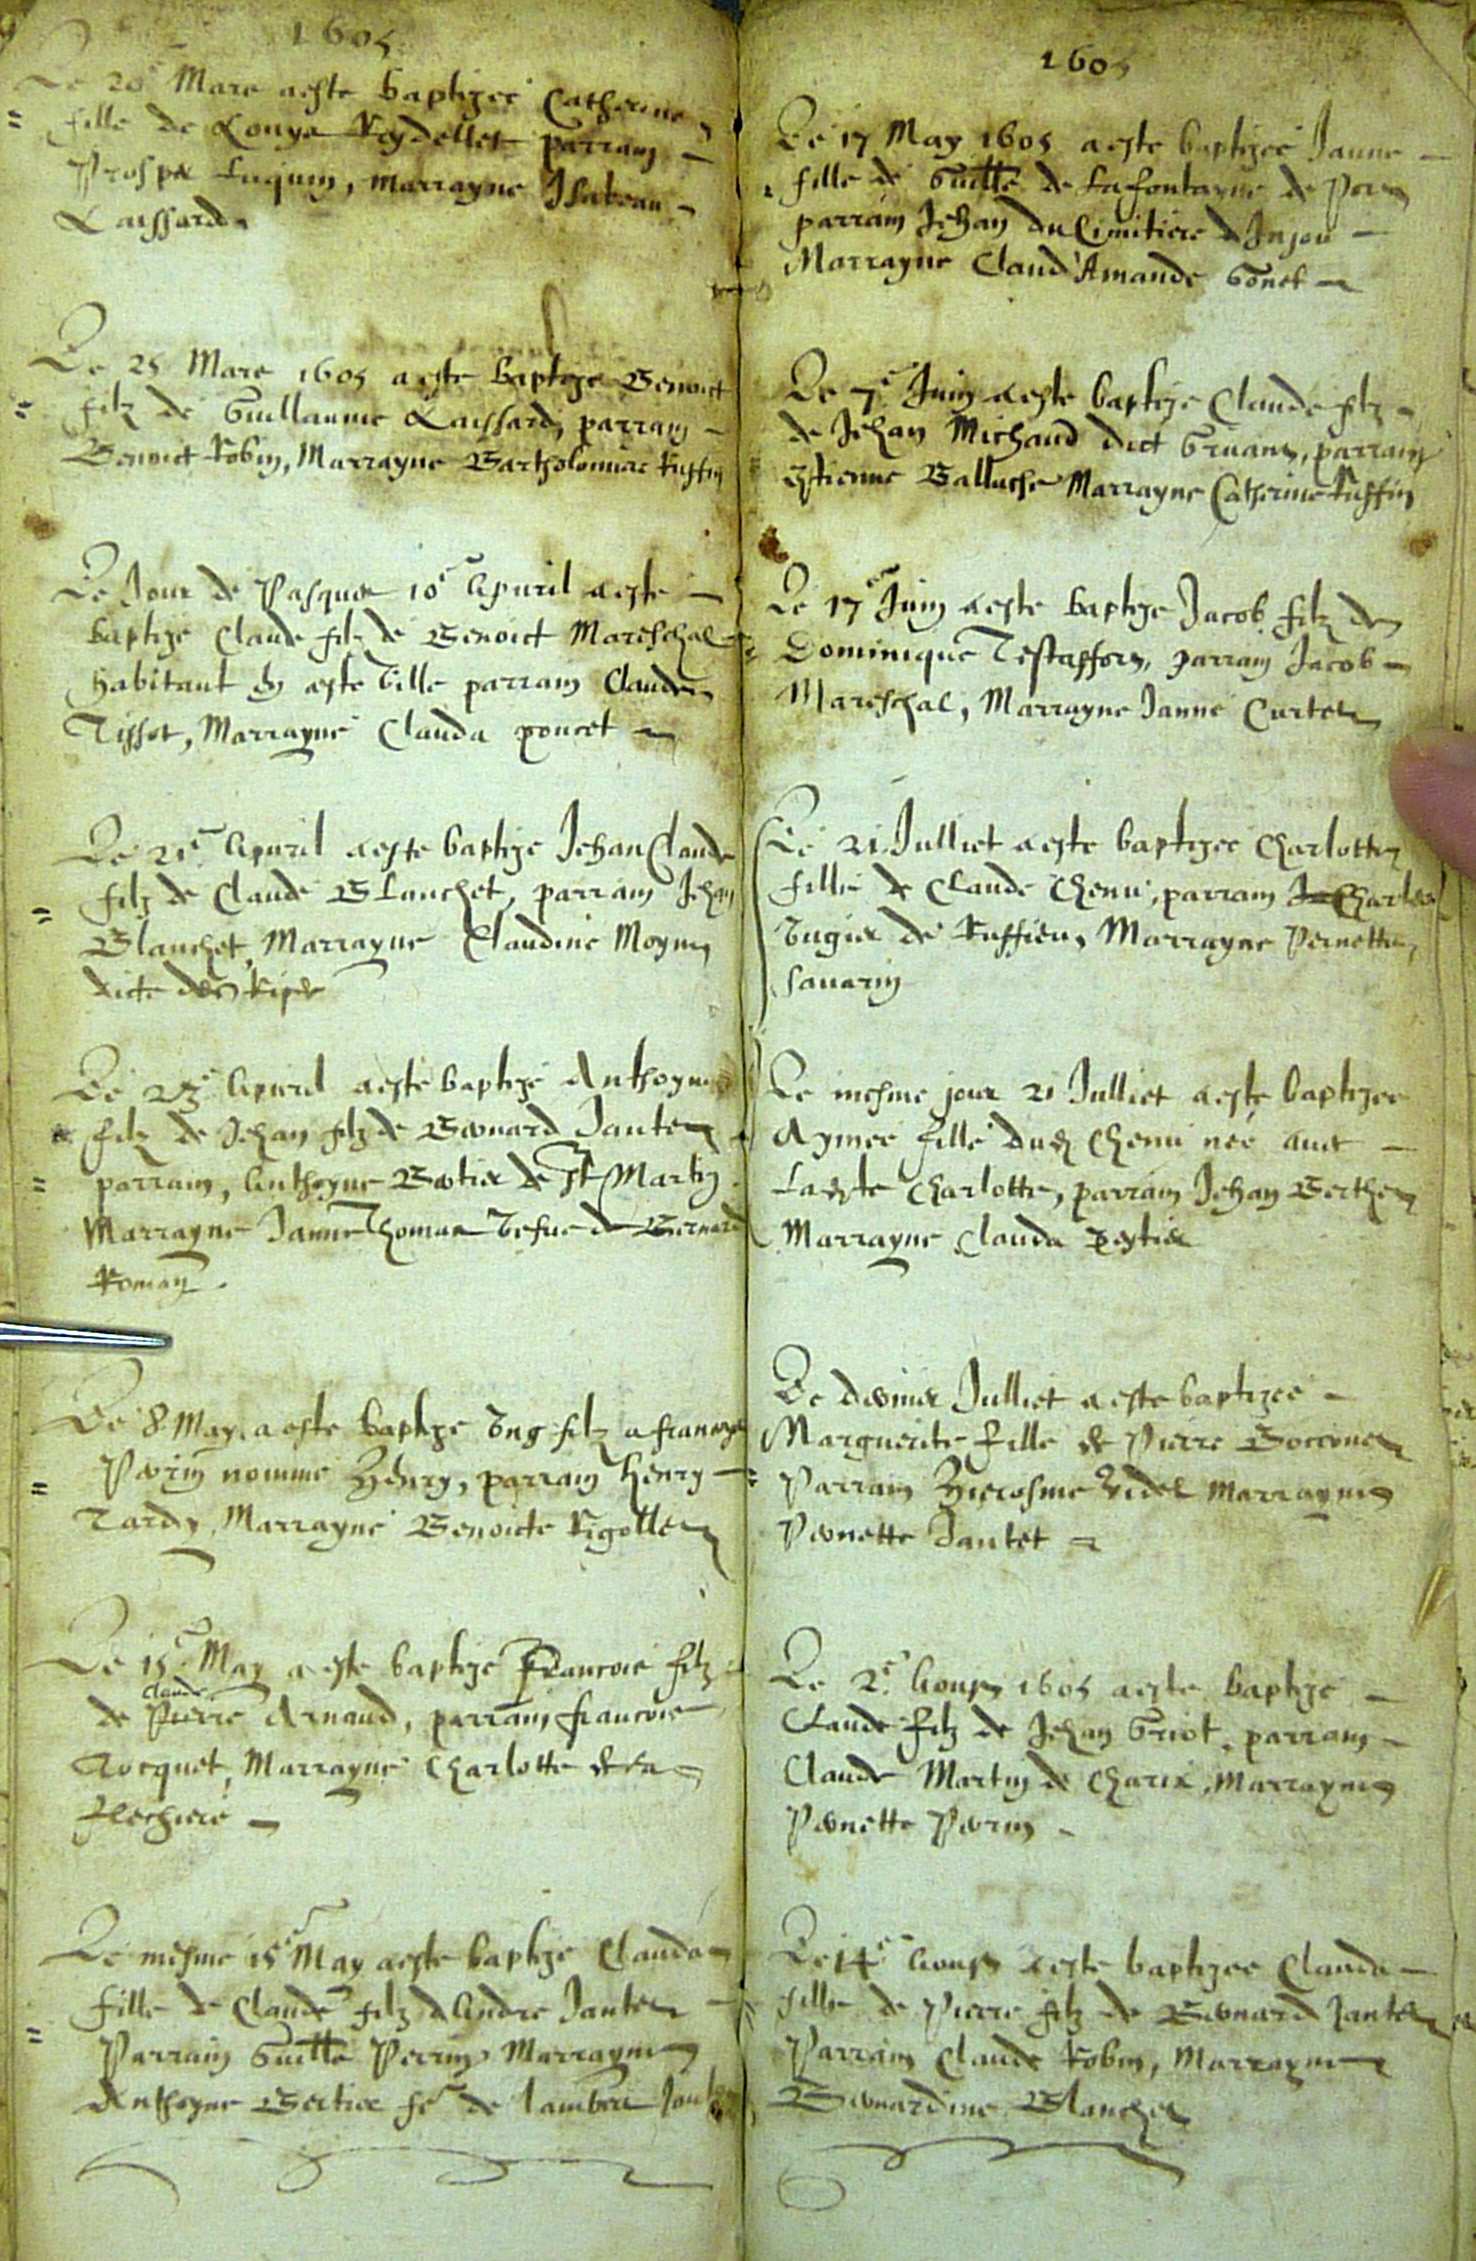 1605
Le 20e Mars a este baptizee Catherine
fille de Louys Reydellet parrain
Prosper Luquin, marrayne Isabeau
Laissard
Le 25 Mars 1605 a este baptize Benoict
filz de Guillaume Laissard, parrain
Benoict Robin, Marrayne Bartholomiae Ruffin
Le Jour de Pasques 10e Apuril a este
baptize Claude filz de Benoict Mareschal
habitant en ceste Ville parrain Claude
Tissot, Marrayne Clauda poncet
Le 21e Apuril a este baptize Jehan Claude
filz de Claude Blanchet, parrain Jehan
Blanchet, Marrayne Claudine Moyne
dicte des
Le 23e Apuril a este baptize Anthoyne
filz de Jehan filz de Bernard Jantet
parrain, Anthoyne Bertier de St Martin
Marrayne Janne Thomas Vefue de Bernard
Roman.
Le 8 May, a este baptize Vng filz a francoys
Perrin nomme Henry, parrain Henry
Tardy, Marrayne Benoicte Rigollet
Le 15e May a este baptize Francois filz
claude
de Pierre Arnaud, parrain francois
Rocquet, Marrayne Charlotte de la
flechiere
Le mesme 15e May a este baptize Clauda
fille de Claude filz d'Andre Jantet
Parrain Guille Perrin Marrayne
Anthoyne Bertier fe de Lambert Jantet
1605
Le 17 May 1605 a este baptizee Janne
fille de Guille de Lafontayne de
parrain Jehan du Cimitiere d'Injou
Marrayne Claud'Amande Gonet
Le 7e Juin a este baptize Claude filz
de Jehan Michaud dict Gruans, parrain
Estienne Balluche Marrayne Catherine Ruffin
Le 17e Juin a este baptize Jacob filz de
Dominique parrain Jacob
Mareschal, Marrayne Janne Curtet
Le 21 Julliet a este baptizee Charlotte
fille de Claude Chenu, parrain Charles
Bugier de Ruffieu, Marrayne Pernette
Sauarin
Le mesme jour 21 Julliet a este baptizee
Aymee fille dud Chenu nee auec
Ladicte Charlotte, parrain Jehan Berthet
Marrayne Clauda Peytier
Le dernier Julliet a este baptizee
Marguerite fille de Pierre Boccone
Parrain Hierosme Videt Marrayne
Pernette Jantet
Le 2e Aoust 1605 a este baptize
Claude filz de Jehan Griot, parrain
Claude Martin de Charix, Marrayne
Pernette Perrin
Le 14e Aoust a este baptizee Clauda
fille de Pierre filz de Bernard Jantet
Parrain Claude Robin, Marrayne
Bernardine Blanchet